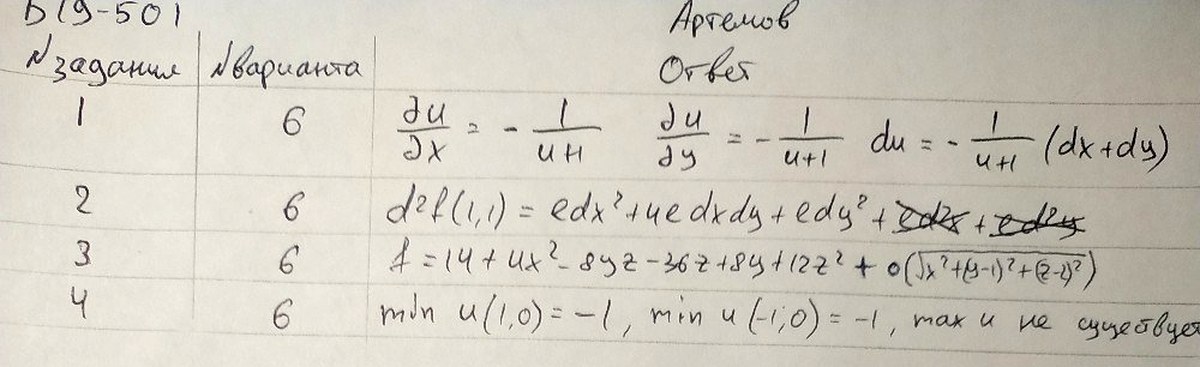 Б19-501 Артемов
№задания №варианта Ответ
1 6 ∂u/∂x = - 1/(u+1) ∂u/∂y = - 1/(u+1) du = - 1/(u+1) (dx+dy)
2 6 d²f(1,1) = edx²+4edxdy+edy²+ed²x+ed²y
3 6 f = 14+4x²-8yz-36z+8y+12z² + o(√x²+(y-1)²+(z-2)²)
4 6 min u(1,0) = -1, min u(-1;0) = -1, max u не существует